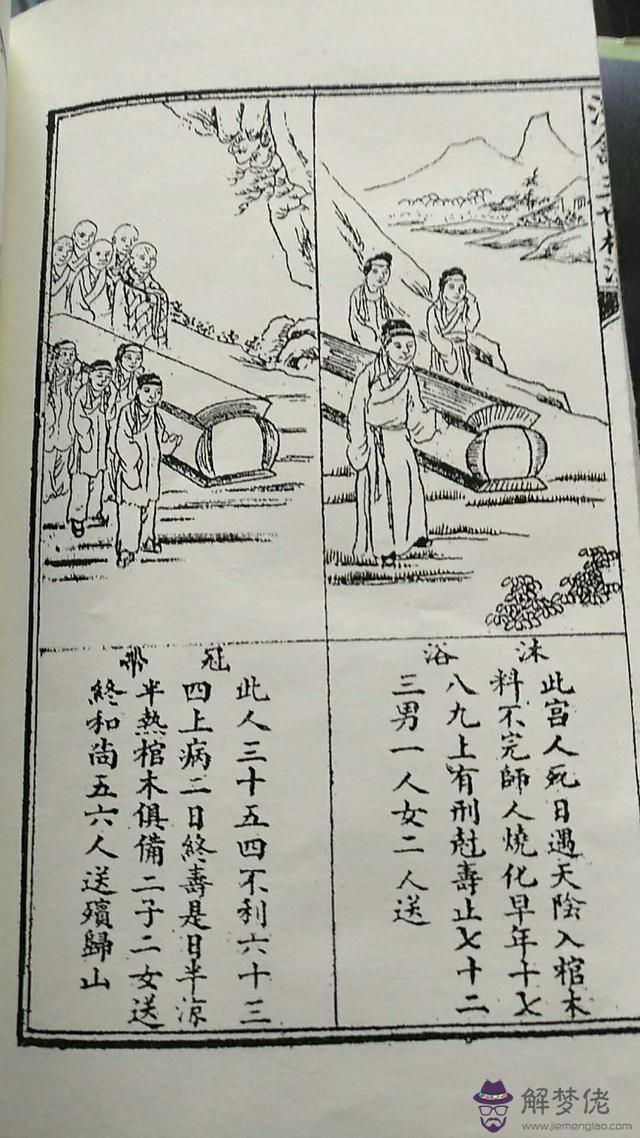 沐浴
此宫人死日遇天陰入棺木
料不完師人燒化早年十七
八九上有刑尅壽止七十二
三男一人女二人送
冠帶
此人三十五四不利六十三
四上病二日終壽是日半凉
半熱棺木俱備二子二女送
終和尚五六人送殯歸山
解梦佬
www.jiemenglao.com